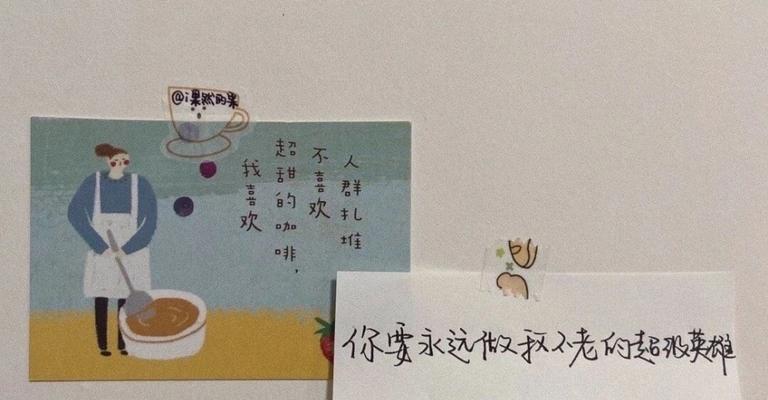 @i果然的果
人群扎堆
不喜欢
超甜的咖啡，
我喜欢
你要永远做我不老的超级英雄